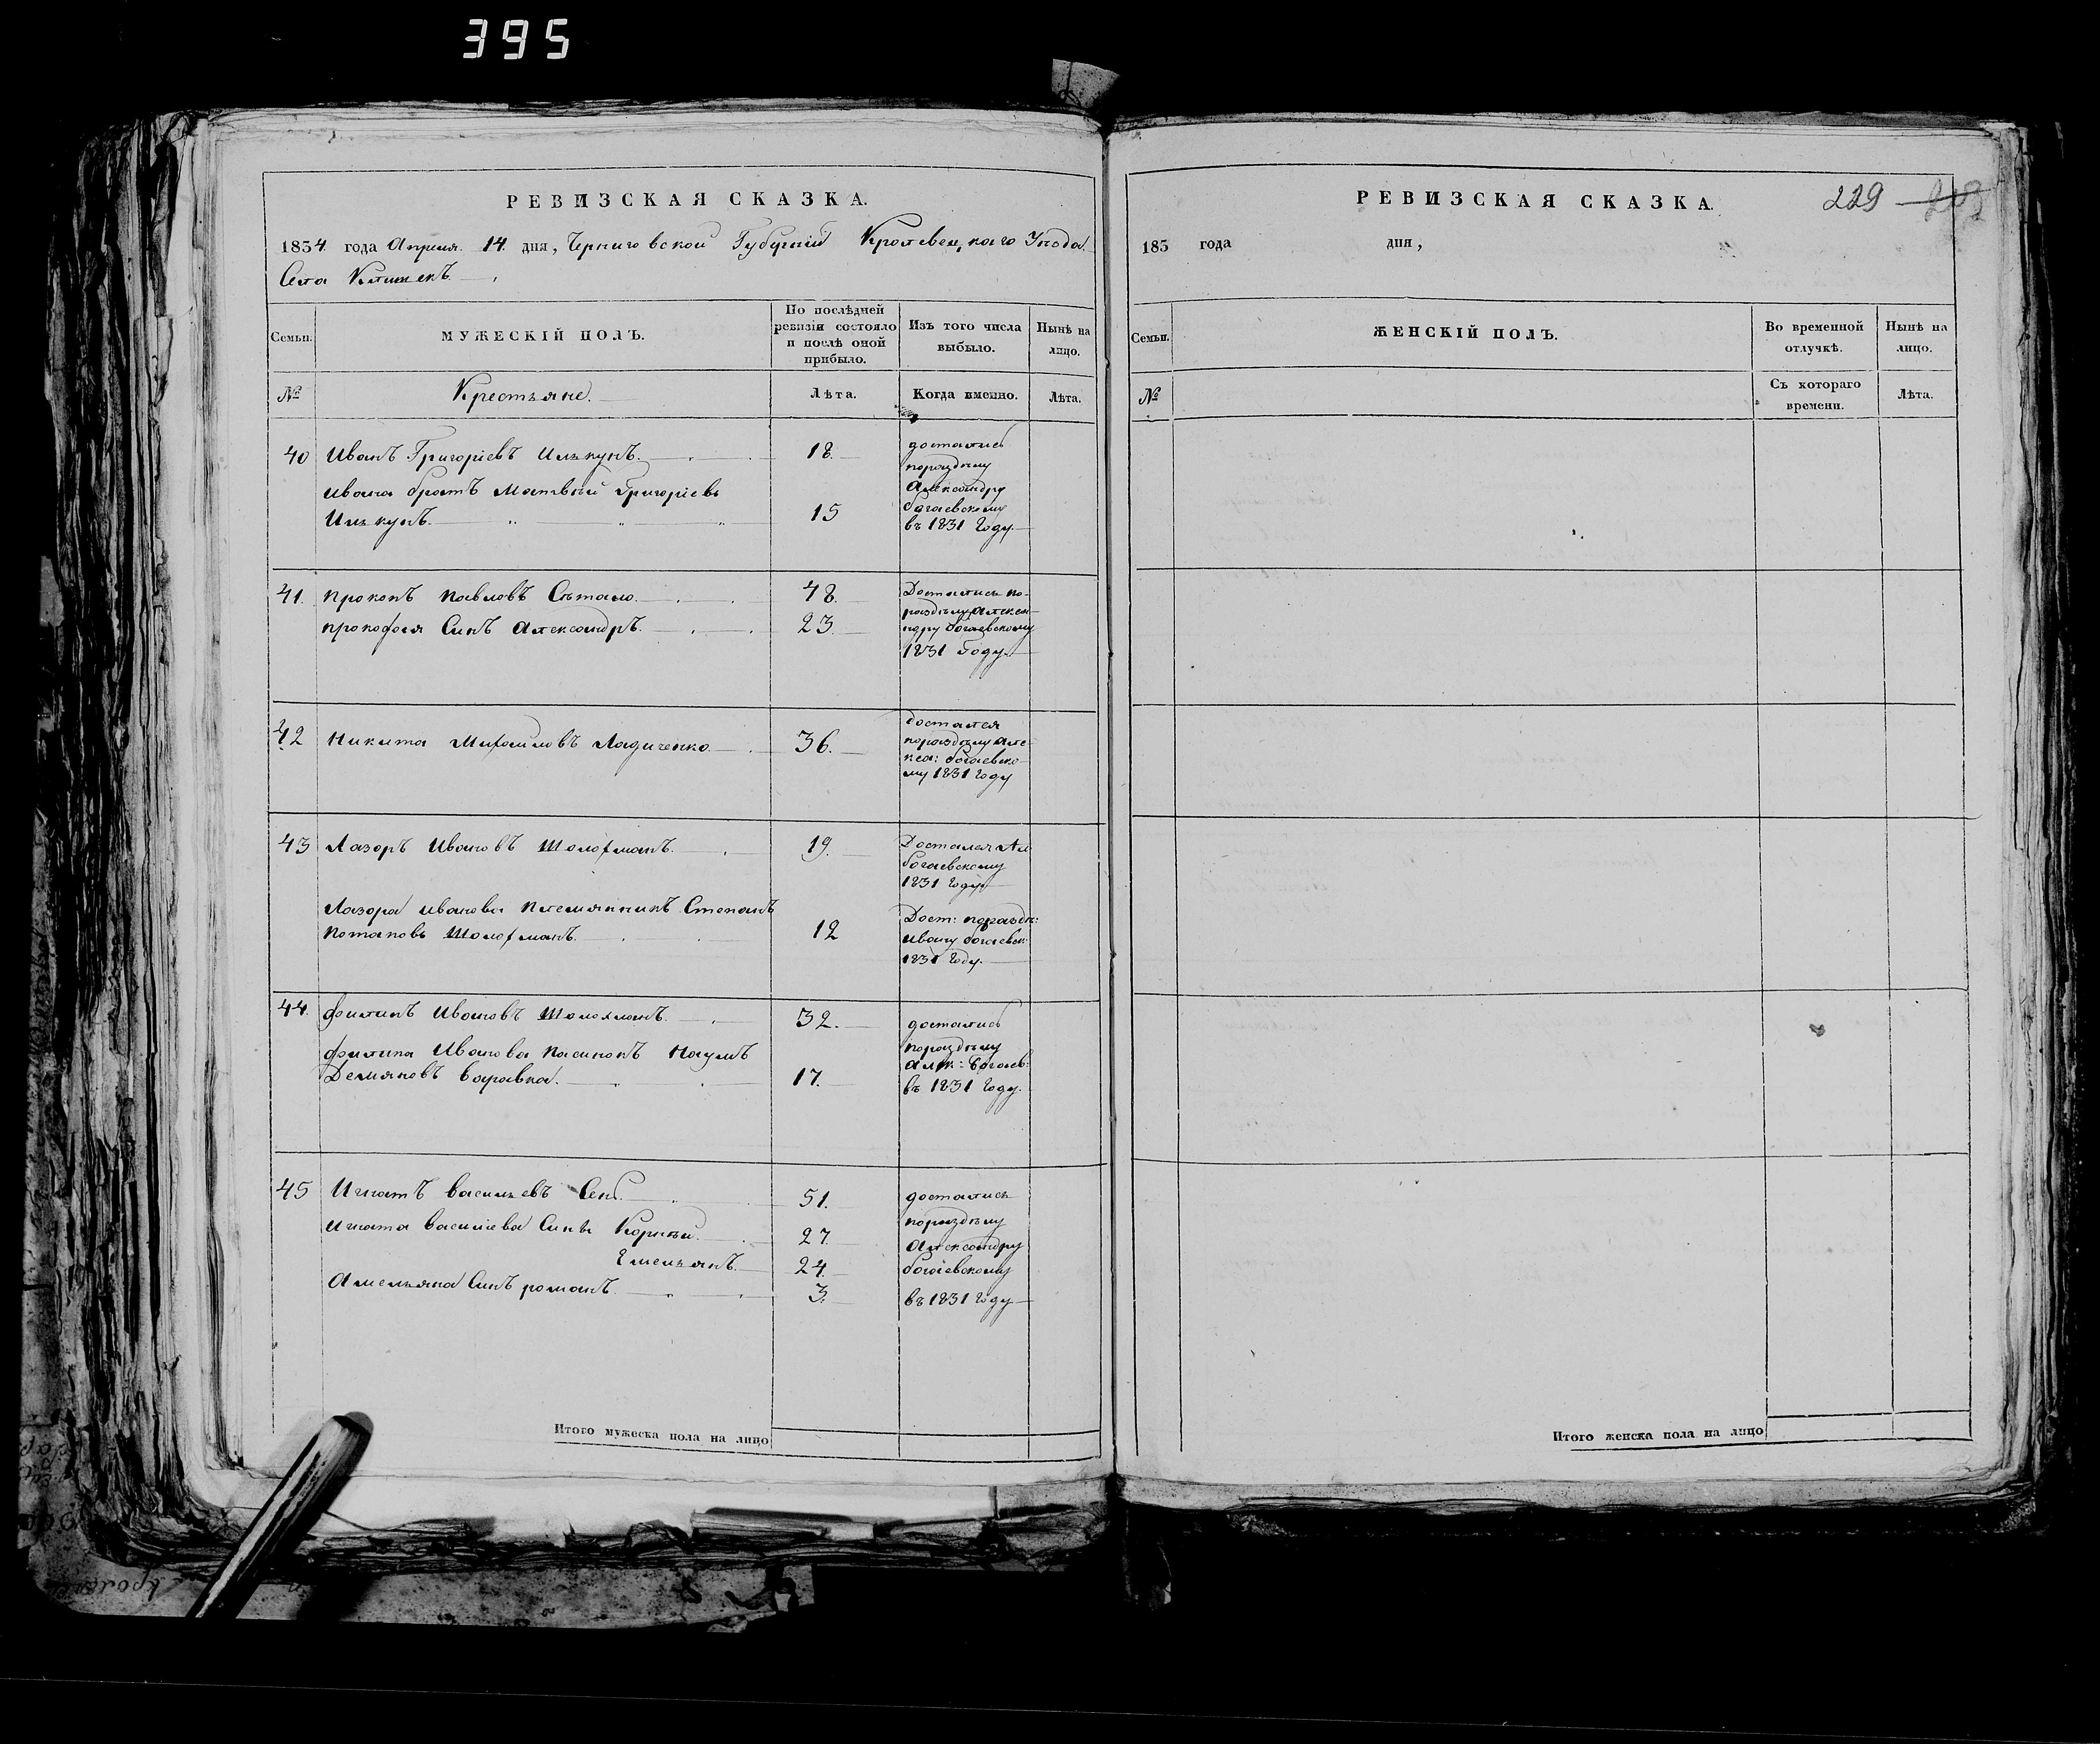 395
РЕВИЗСКАЯ СКАЗКА.
1834 года Апреля 14 дня, Черниговской Губерніи Кролевецкаго Уезда
Села Клишекъ
Семьи.
МУЖЕСКІЙ ПОЛЪ.
По послѣдней ревизіи состояло и послѣ оной прибыло.
Изъ того числа выбыло.
Нынѣ на лицо.
№
Крестьяне.
Лѣта.
Когда именно.
Лѣта.
40 Иванъ Григоріевъ Илькунъ. 18.
Ивана братъ Матвѣй Григоріевъ
Илькунъ. 15
достались
поразделу
Александру
богаевскому
въ 1831 Году.
41. прокопъ павловъ 48.
прокофія Синъ Александръ. 23.
Достались по-
разделу Алексан-
дру богаевскому
1831 Году.
42 Никита Михайловъ Ладиченко 36.
достался
поразделу Але-
кса: богаевско-
му 1831 Году
43 Лазоръ Ивановъ Шолохманъ. 19.
Достался Ал
богаевскому
1831 Году
Лазора иванова племянникъ Степанъ
потаповъ Шолохманъ. 12
Дост: поразде:
ивану богаевск:
1831 Году.
44. филипъ Ивановъ Шолохманъ. 32.
филипа Иванова пасинокъ Наумъ
Демяновъ варавка. 17.
достались
поразделу
Алек: богаев:
въ 1831 Году.
45 Игнатъ васильевъ 51.
Игната василіева Синъ Корнѣй. 27.
Емельянъ. 24.
Амельяна Синъ романъ 3.
достались
поразделу
Александру
богаевскому
въ 1831 Году
Итого мужеска пола на лицо
РЕВИЗСКАЯ СКАЗКА.
229
183 года дня,
Семьи.
ЖЕНСКІЙ ПОЛЪ.
Во временной отлучкѣ.
Нынѣ на лицо.
№
Съ котораго времени.
Лѣта.
Итого женска пола на лицо